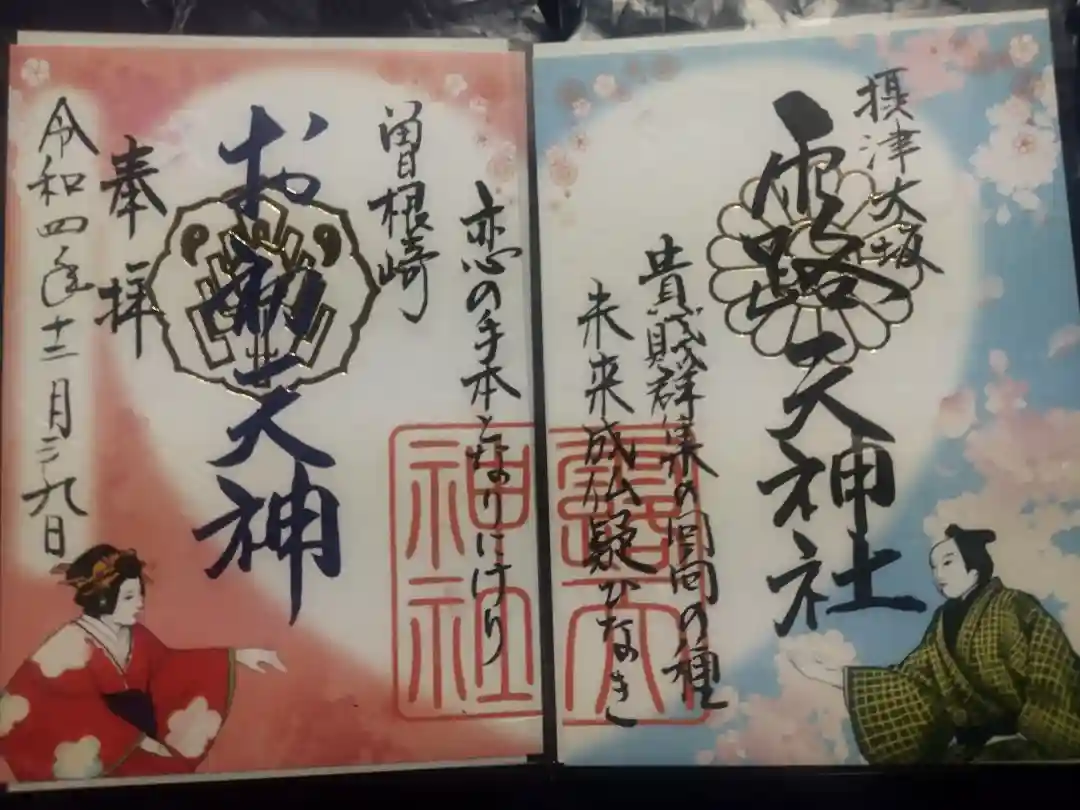 摂津大坂
露天神社
貴賎群集の回向の種
未来成仏疑ひなき
恋の手本となりにけり
曽根崎
お初天神
奉拝
令和四年十二月二九日
露天
神社